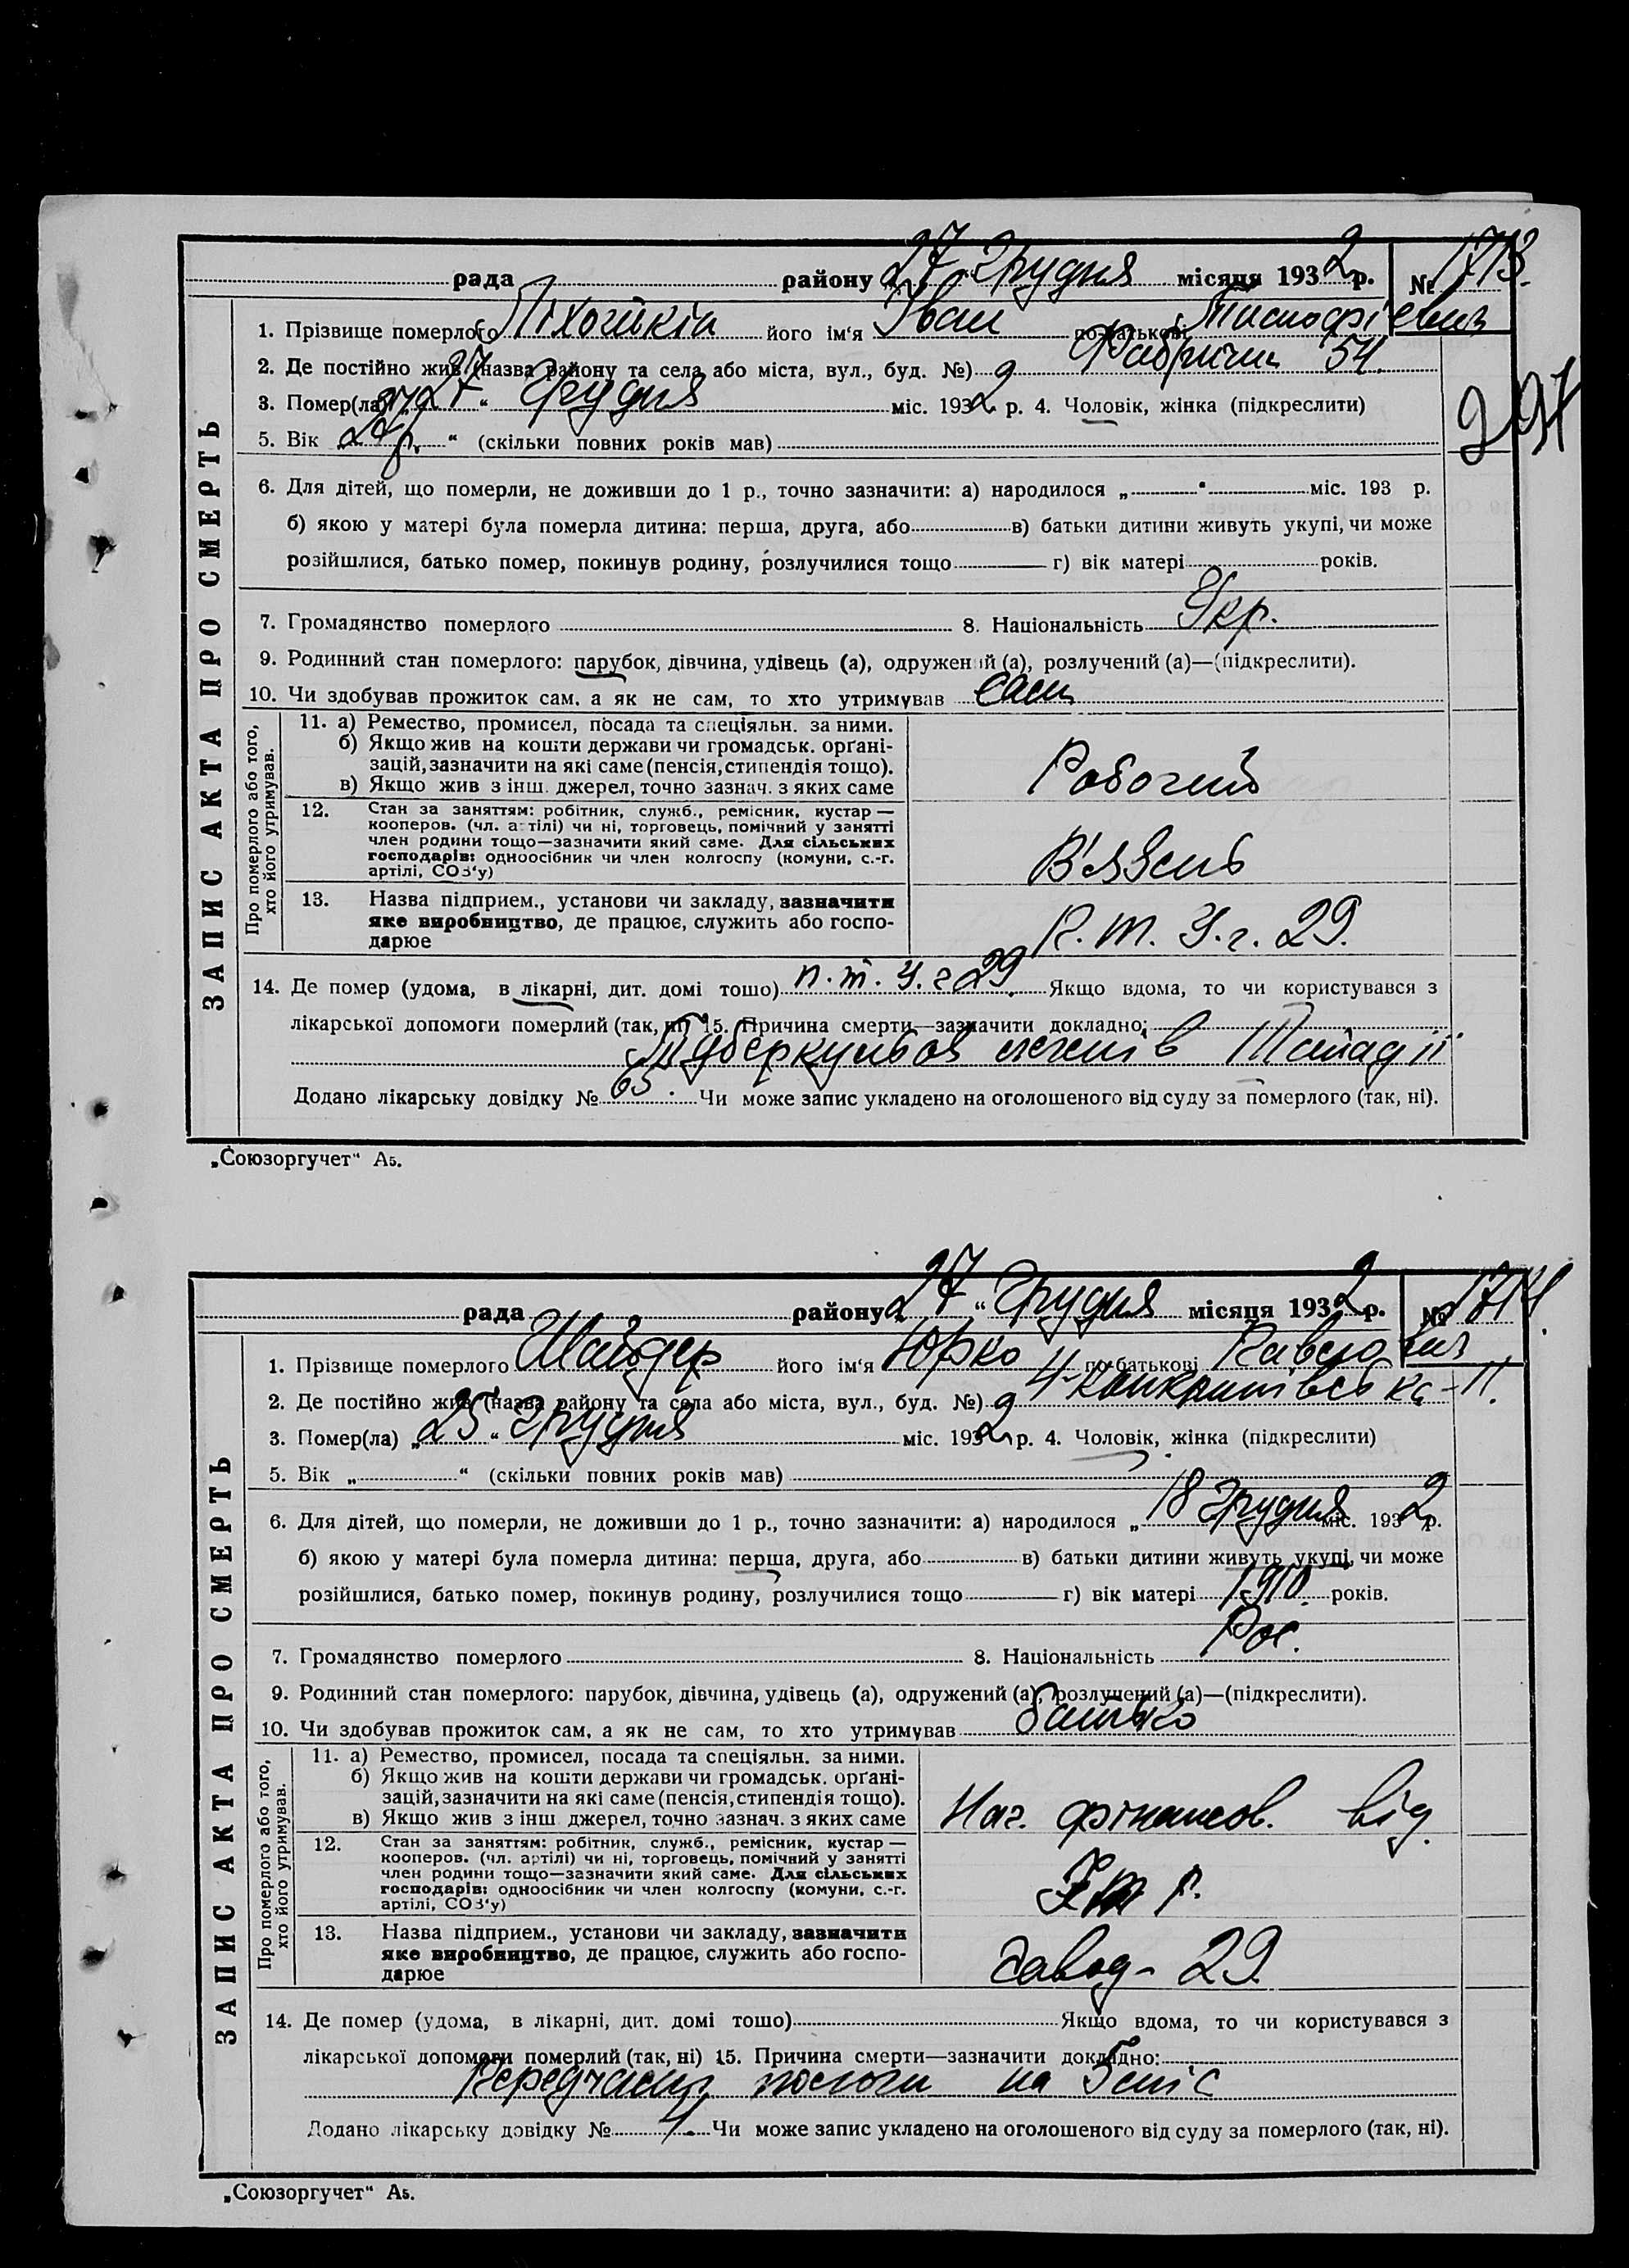 рада району „27" Грудня місяця 1932 р. № 1713.
1. Прізвище померлого його ім'я Іван по батькові
2. Де постійно жив (назва району та села або міста, вул., буд. №) 54.
3. Помер(ла) „27" Грудня міс. 1932 р. 4. Чоловік, жінка (підкреслити)
297
5. Вік „ " (скільки повних років мав)
6. Для дітей, що померли, не доживши до 1 р., точно зазначити: а) народилося „ " міс. 193 р.
б) якою у матері була померла дитина: перша, друга, або в) батьки дитини живуть укупі, чи може
розійшлися, батько помер, покинув родину, розлучилися тощо г) вік матері років.
7. Громадянство померлого 8. Національність Укр.
9. Родинний стан померлого: парубок, дівчина, удівець (а), одружений (а), розлучений (а)—(підкреслити).
10. Чи здобував прожиток сам, а як не сам, то хто утримував сам
ЗАПИС АКТА ПРО СМЕРТЬ
Про померлого або того, хто його утримував.
11. а) Ремество, промисел, посада та спеціяльн. за ними.
б) Якщо жив на кошти держави чи громадськ. орґані-
зацій, зазначити на які саме (пенсія, стипендія тощо).
в) Якщо жив з інш. джерел, точно зазнач. з яких саме
Робочий
12. Стан за заняттям: робітник, служб., ремісник, кустар —
кооперов. (чл. артілі) чи ні, торговець, помічний у занятті
член родини тощо—зазначити який саме. Для сільських
господарів: одноосібник чи член колгоспу (комуни, с.-г.
артілі, СОЗ'у)
В'язень
13. Назва підприєм., установи чи закладу, зазначити
яке виробництво, де працює, служить або госпо-
дарює
29.
14. Де помер (удома, в лікарні, дит. домі тощо) п.т.у. г 29. Якщо вдома, то чи користувався з
лікарської допомоги померлий (так, ні) 15. Причина смерти—зазначити докладно:
Туберкульоз легенів
Додано лікарську довідку № 65. Чи може запис укладено на оголошеного від суду за померлого (так, ні).
„Союзоргучет" А5.
рада району „27" Грудня місяця 1932 р. № 1714.
1. Прізвище померлого Шайдер його ім'я Юрко по батькові Павлович
2. Де постійно жив (назва району та села або міста, вул., буд. №) 11.
3. Помер(ла) „25" Грудня міс. 1932 р. 4. Чоловік, жінка (підкреслити)
5. Вік „ " (скільки повних років мав)
6. Для дітей, що померли, не доживши до 1 р., точно зазначити: а) народилося „18 Грудня міс. 1932 р.
б) якою у матері була померла дитина: перша, друга, або в) батьки дитини живуть укупі, чи може
розійшлися, батько помер, покинув родину, розлучилися тощо г) вік матері 1910. років.
7. Громадянство померлого 8. Національність Рос.
9. Родинний стан померлого: парубок, дівчина, удівець (а), одружений (а), розлучений (а)—(підкреслити).
10. Чи здобував прожиток сам, а як не сам, то хто утримував батько
ЗАПИС АКТА ПРО СМЕРТЬ
Про померлого або того, хто його утримував.
11. а) Ремество, промисел, посада та спеціяльн. за ними.
б) Якщо жив на кошти держави чи громадськ. орґані-
зацій, зазначити на які саме (пенсія, стипендія тощо).
в) Якщо жив з інш. джерел, точно зазнач. з яких саме
Нач. фінансов. від.
12. Стан за заняттям: робітник, служб., ремісник, кустар —
кооперов. (чл. артілі) чи ні, торговець, помічний у занятті
член родини тощо—зазначити який саме. Для сільських
господарів: одноосібник чи член колгоспу (комуни, с.-г.
артілі, СОЗ'у)
13. Назва підприєм., установи чи закладу, зазначити
яке виробництво, де працює, служить або госпо-
дарює
завод - 29.
14. Де помер (удома, в лікарні, дит. домі тощо) Якщо вдома, то чи користувався з
лікарської допомоги померлий (так, ні) 15. Причина смерти—зазначити докладно:
Передчасні пологи на
Додано лікарську довідку № Чи може запис укладено на оголошеного від суду за померлого (так, ні).
„Союзоргучет" А5.